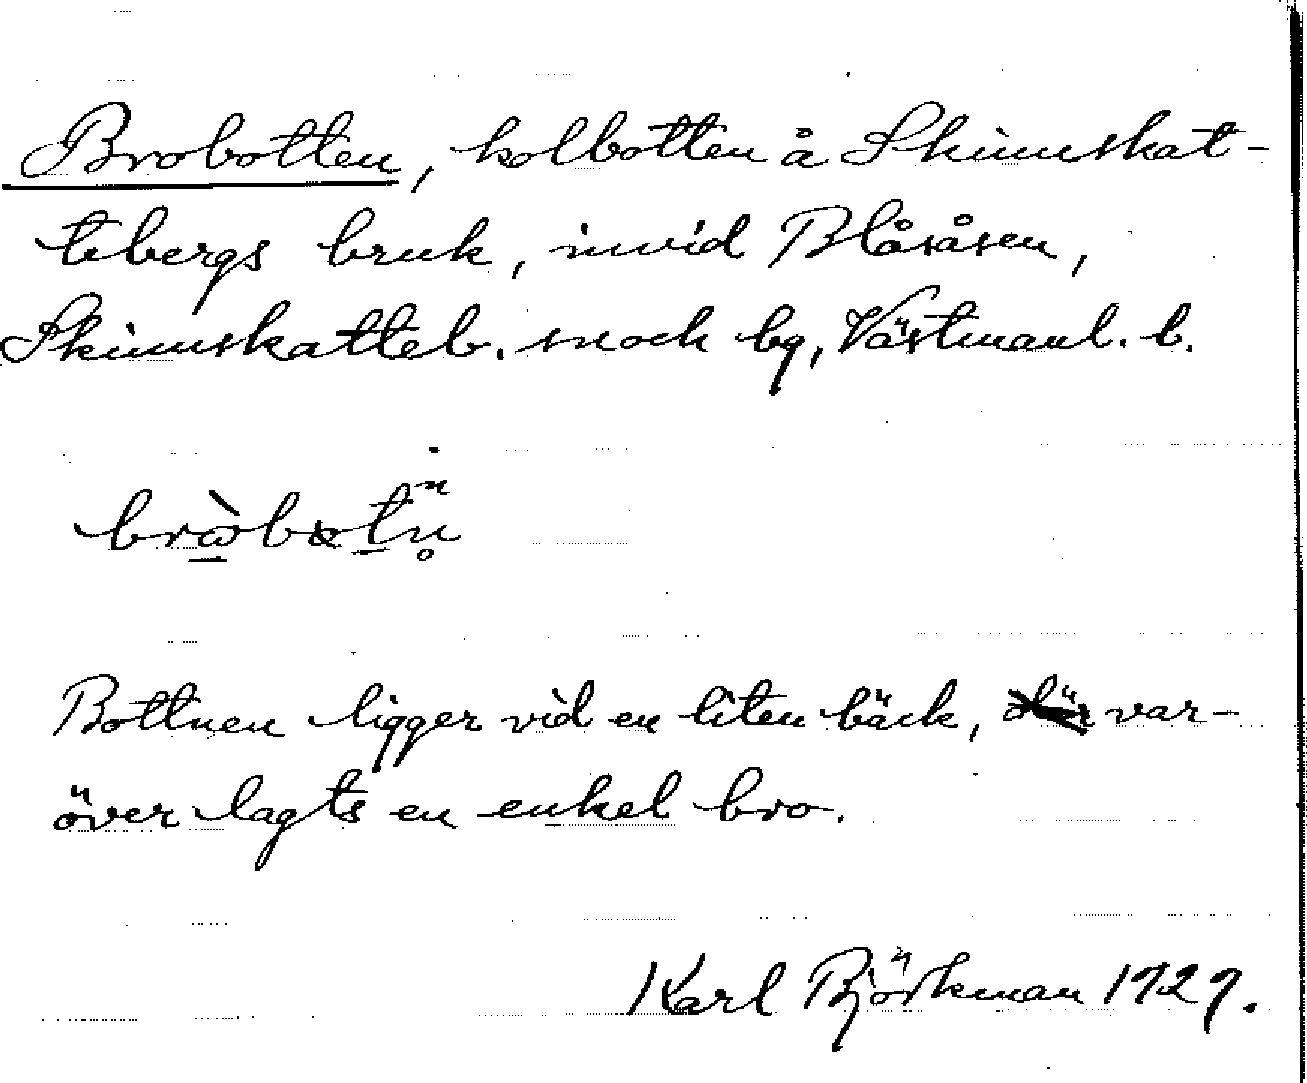 Brobotten, kolbotten å Skinnskat-
tebergs bruk, invid Blåsåsen,
Skinnskatteb. snock bg, Västmanl. b.
Bottnen ligger vid en liten bäck, där var-
över lagts en enkel bro.
Karl Björkman 1929.